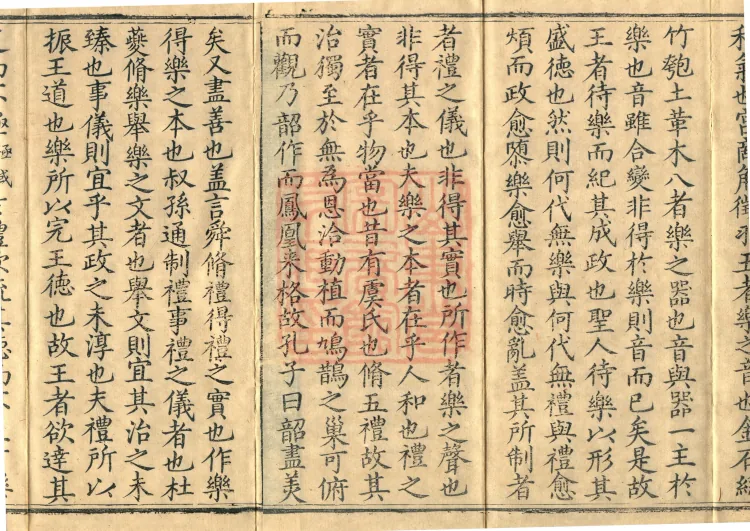 和氣也宮商角徵羽五者樂之音也金石絲
竹匏土革木八者樂之器也音與器一主於
樂也音雖合變非得於樂則音而已矣是故
王者待樂而紀其成政也聖人待樂以形其
盛德也然則何代無樂與何代無禮與禮愈
煩而政愈隳樂愈舉而時愈亂盖其所制者
者禮之儀也非得其實也所作者樂之聲也
非得其本也夫樂之本者在乎人和也禮之
實者在乎物當也昔有虞氏也脩五禮故其
治獨至於無為恩洽動植而鳩鵲之巢可俯
而觀乃韶作而鳳凰来格故孔子曰韶盡美
矣又盡善也盖言舜脩禮得禮之實也作樂
得樂之本也叔孫通制禮事禮之儀者也杜
夔脩樂舉樂之文者也舉文則宜其治之未
臻也事儀則宜乎其政之未淳也夫禮所以
振王道也樂所以完王德也故王者欲達其